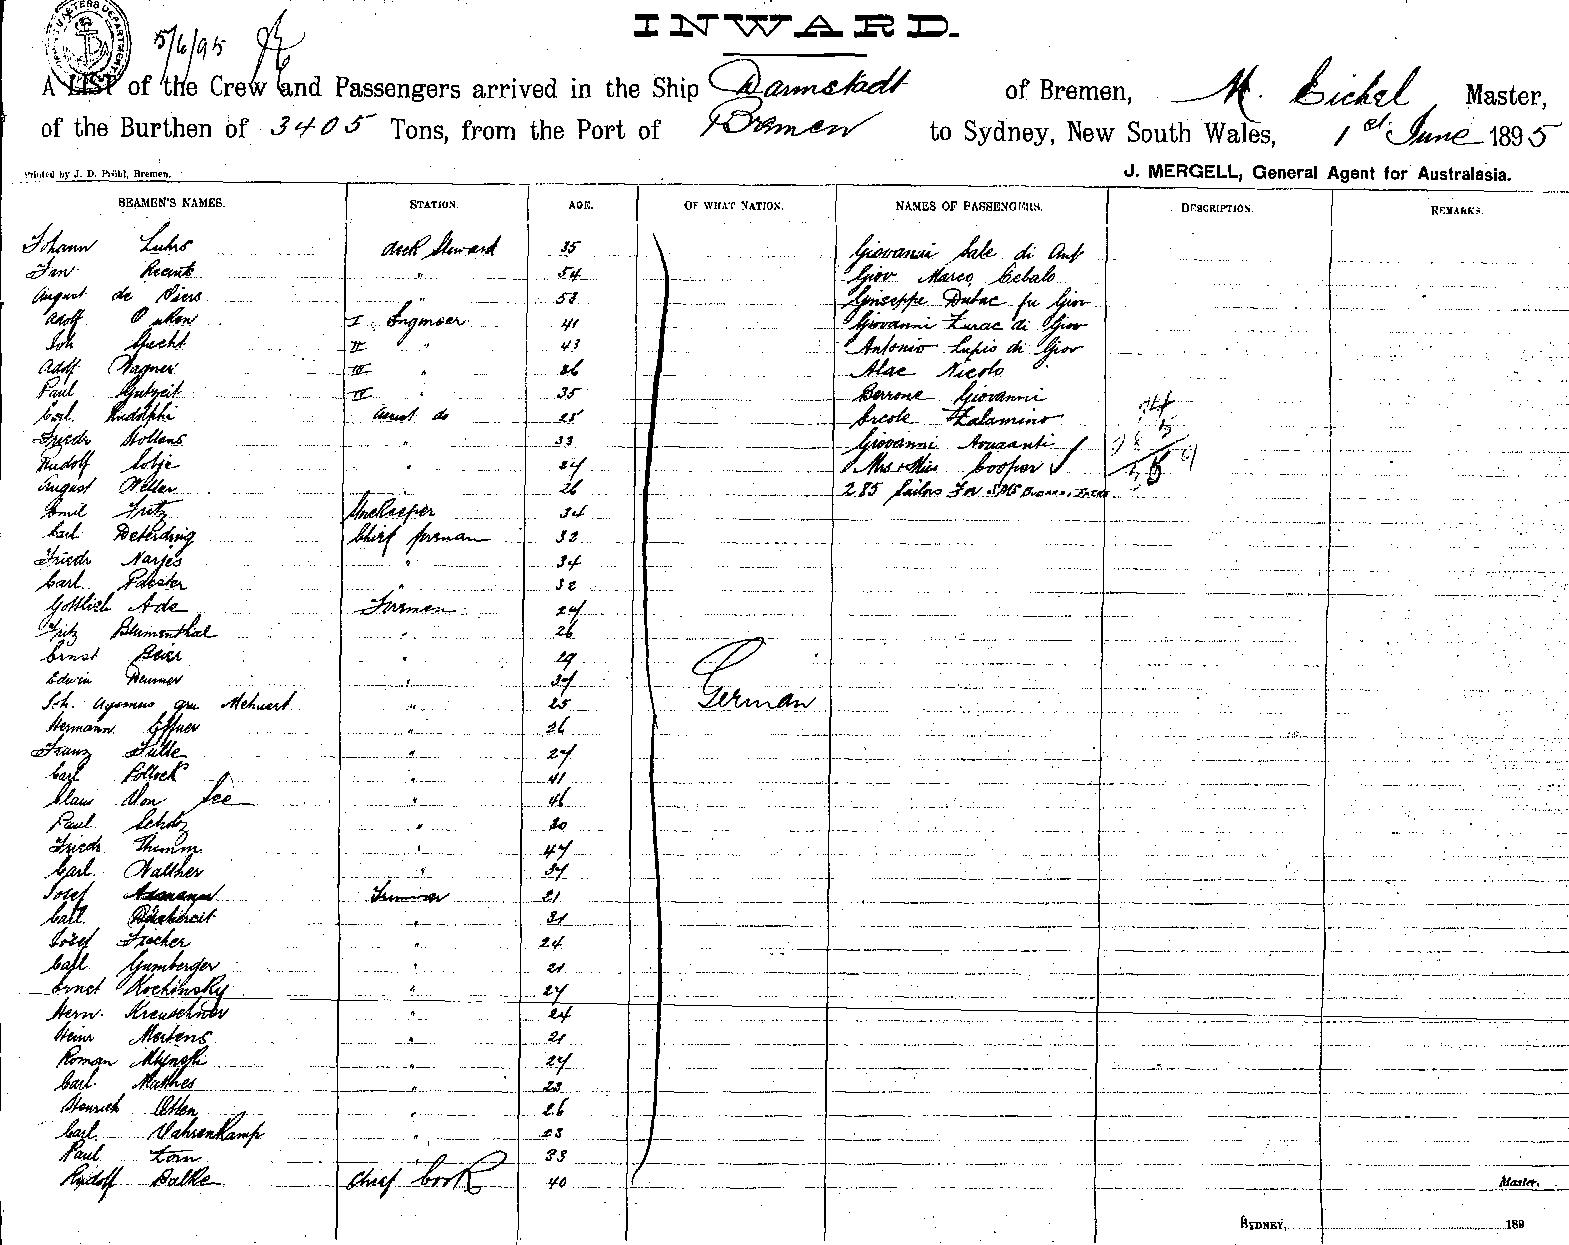 INWARD.
5/6/95
A LIST of the Crew and Passengers arrived in the Ship Darmstadt of Bremen, M. Eichel, Master,
of the Burthen of 3405 Tons, from the Port of Bremen to Sydney, New South Wales, 1st June 1895
Printed by J. D. Pröhl, Bremen.
J. MERGELL, General Agent for Australasia.
SEAMEN'S NAMES. STATION. AGE. OF WHAT NATION. NAMES OF PASSENGERS. DESCRIPTION. REMARKS.
Johann Luhrs deck Steward 35 Giovanni Sale di Ant
Jan " 54 Giov Marco Cebalo
August de Viers " 53 Giuseppe Dubac fu Giov
Adolf I Engineer 41 Giovanni Zurac di Giov
Joh Gucht II " 43 Antonio Lupis di Giov
Adolf Wagner III " 26 Alac Nicolo
Paul Gutzeit IV " 35 Berrone Giovanni
Carl Rudolphi Assist do 25 Ercole Zalamino
Friedr Stollens " 33 Giovanni
Rudolf Cobje " 27 Mrs + Miss Cooper
August Weller " 26 285 Sailors For SMS
Emil Fritz Storekeeper 34
Carl Deterding Chief foreman 32
Friedr Narjes " 34
Carl Paester " 32
Gottlieb Ade Firemen 27
Fritz Blumenthal " 26
Ernst Beier " 29
Edwin Deumer " 37
Joh. gen Mehnert " 25 German
Hermann Effner " 26
Franz Fülle " 27
Carl Pollock " 41
Claus Von See " 46
Paul Scholz " 30
Friedr Thimm " 47
Carl Walther " 37
Josef Assmann Trimmer 21
Carl " 31
Josef Fischer " 24
Carl Gumberger " 21
Ernst Kochinsky " 27
Herm. Kreuschner " 24
Heinr Mertens " 21
Roman " 27
Carl Mathes " 23
Heinrich Otten " 26
Carl Vahrenkamp " 23
Paul Zorn " 33
Rudolf Dalke Chief Cook 40
Master.
SYDNEY, 189